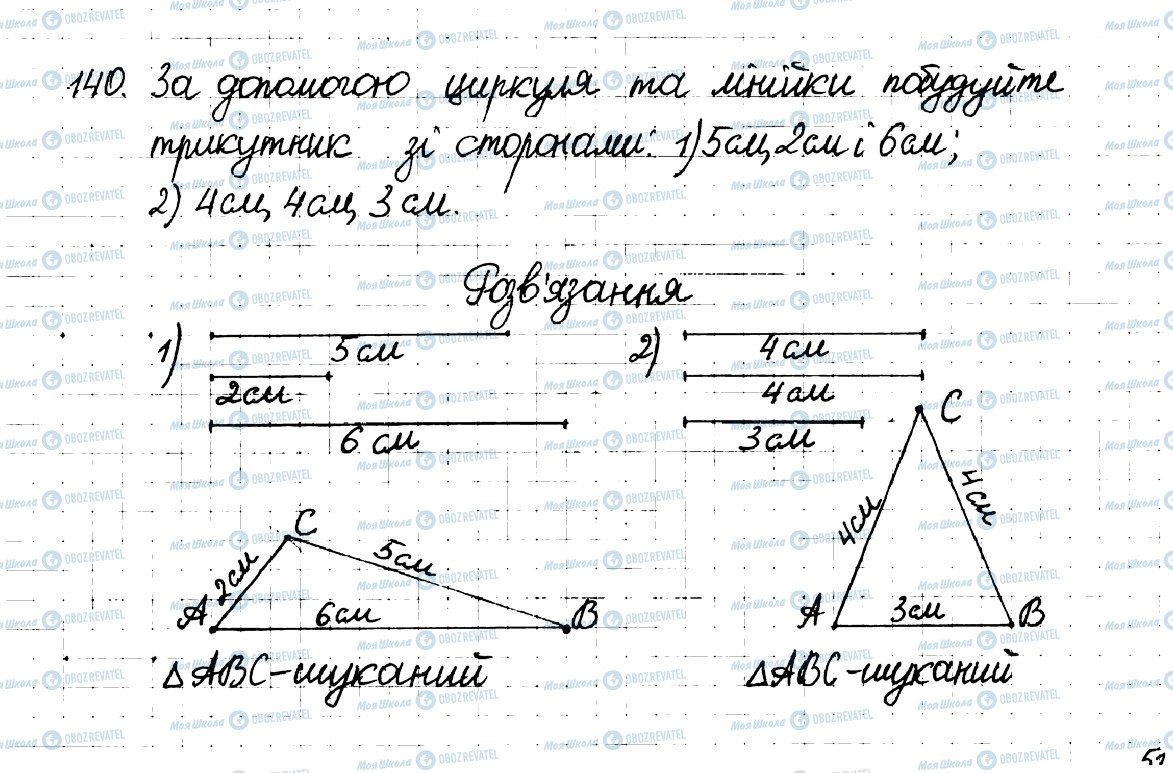 140. За допомогою циркуля та лінійки побудуйте
трикутник зі сторонами: 1) 5см, 2см і 6см;
2) 4см, 4см, 3см.
Розв'язання
1) 5см
2см
6 см
2) 4см
4см
3см
C
2см
5см
A
6см
B
△ABC-шуканий
C
4см
4см
A
3см
B
△ABC-шуканий
51
Моя Школа OBOZREVATEL